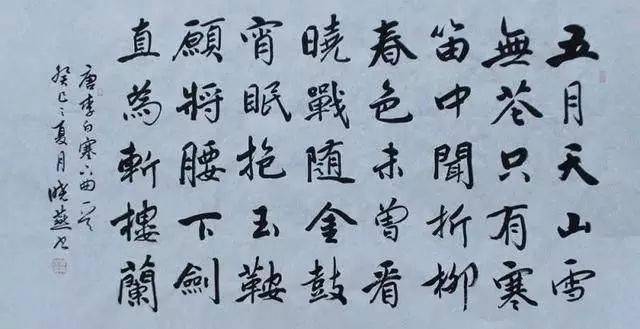 五月天山雪
無花只有寒
笛中聞折柳
春色未曾看
曉戰随金鼓
宵眠抱玉鞍
願將腰下劍
直為斬樓蘭
唐李白塞下曲一首
癸巳之夏月晓燕书